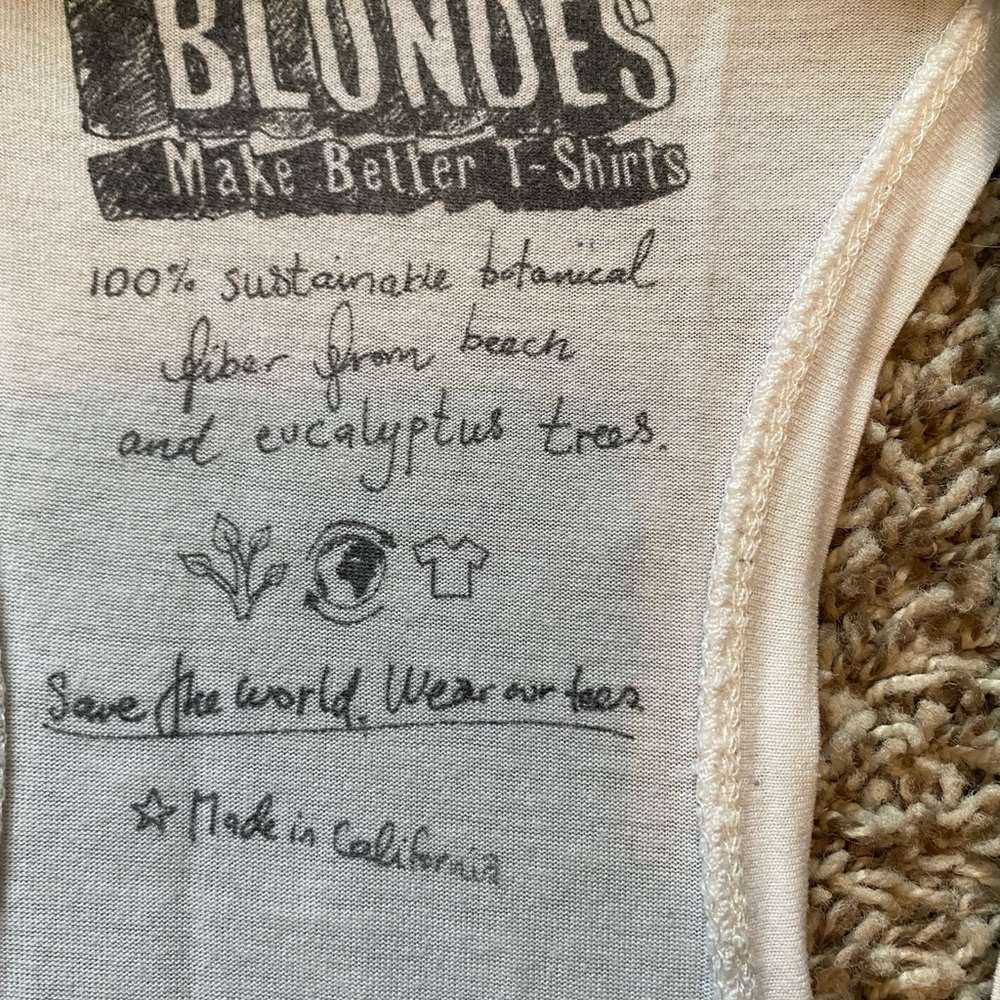 BLONDES
Make Better T-Shirts
100% sustainable botanical
fiber from beech
and eucalyptus trees.
Save the world. Wear our tees.
Made in California